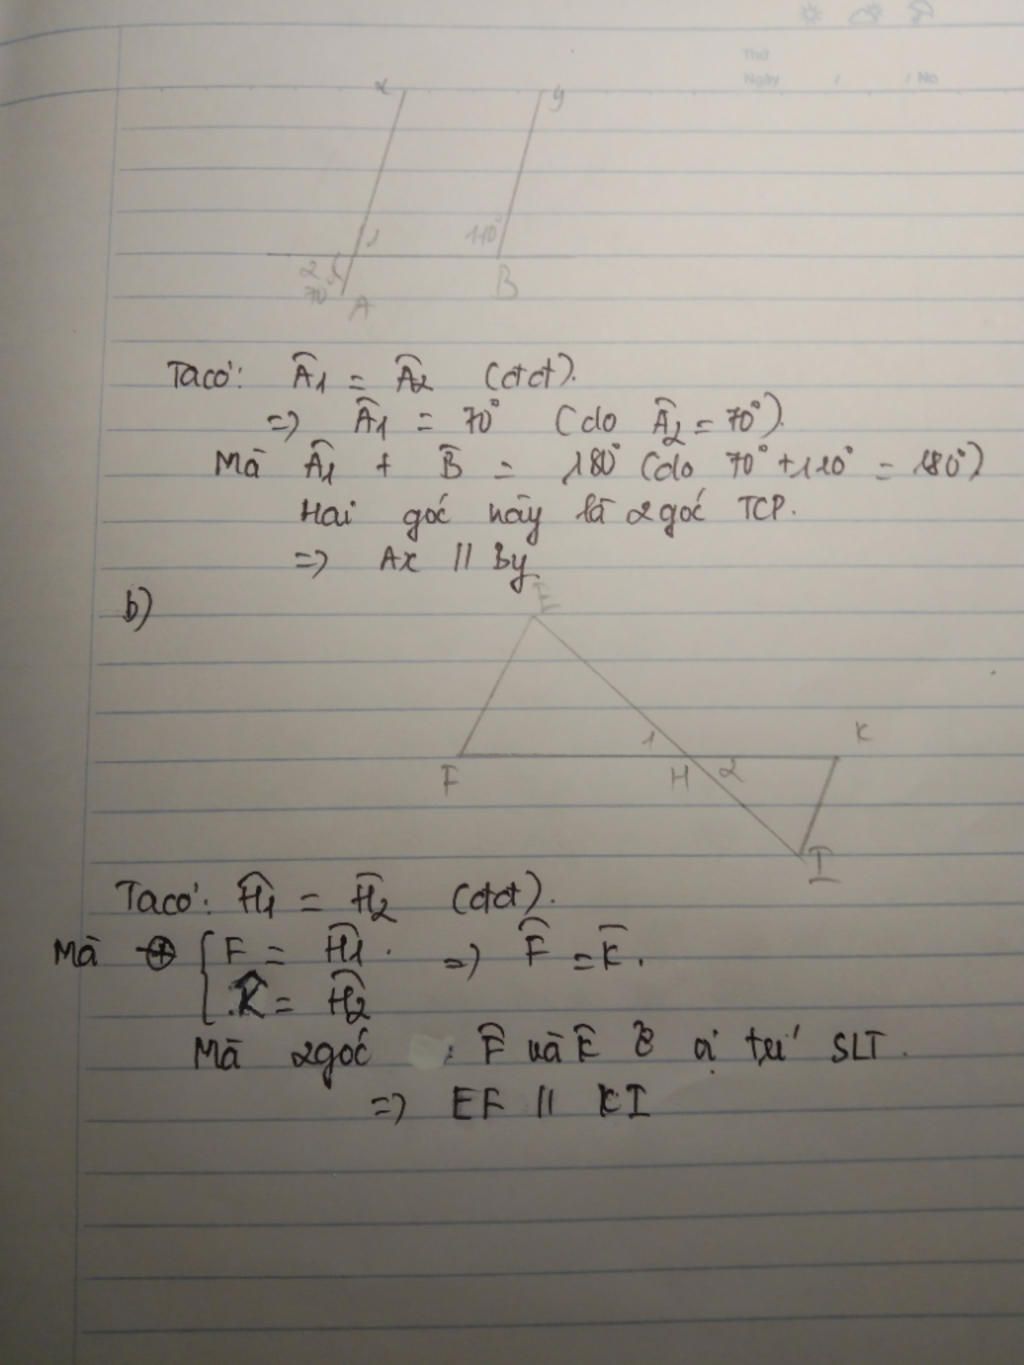 Thứ
Ngày / / No
x y
1 110°
2
70° A B
Ta có: Â1 = Â2 (đđ).
=> Â1 = 70° (do Â2 = 70°).
Mà Â1 + B̂ = 180° (do 70° + 110° = 180°)
Hai góc này là 2 góc TCP.
=> Ax // By
b)
E
1 K
F H 2
I
Ta có: Ĥ1 = Ĥ2 (đđ).
Mà ⊕ { F = Ĥ1. => F̂ = K̂.
K̂ = Ĥ2
Mà 2 góc : F̂ và K̂ ở vị trí SLT.
=> EF // KI